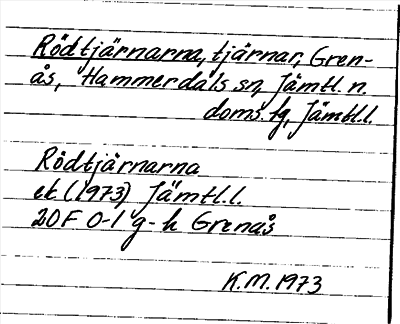 Rödtjärnarna, tjärnar, Gren-
ås, Hammerdals sn, Jämtl. n.
doms. tg, Jämtl.l.
Rödtjärnarna
ek (1973) Jämtl.l.
20F 0-1 g-h Grenås
K.M. 1973